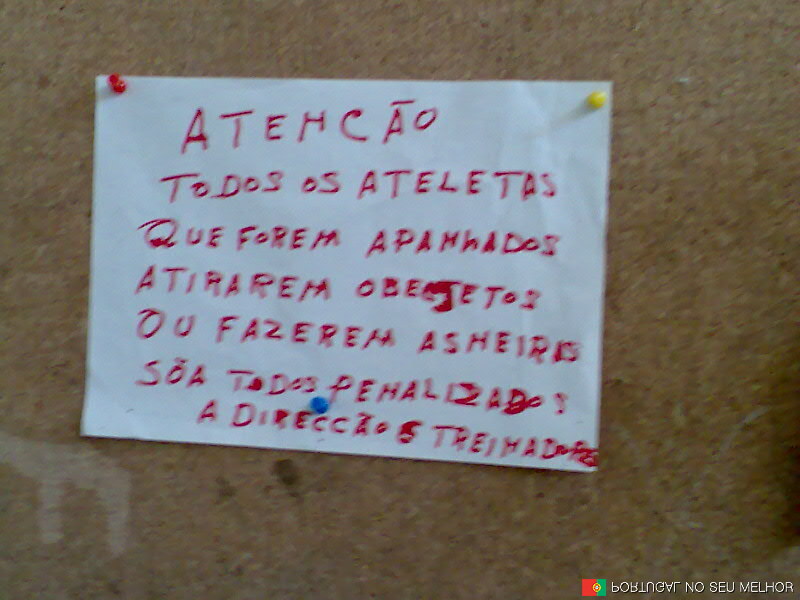 ATENCÃO
TODOS OS ATELETAS
QUE FOREM APANHADOS
ATIRAREM OBEJETOS
OU FAZEREM ASNEIRAS
SÕA TODOS PENALIZADOS
A DIRECCÃO E TREINADORES
PORTUGAL NO SEU MELHOR